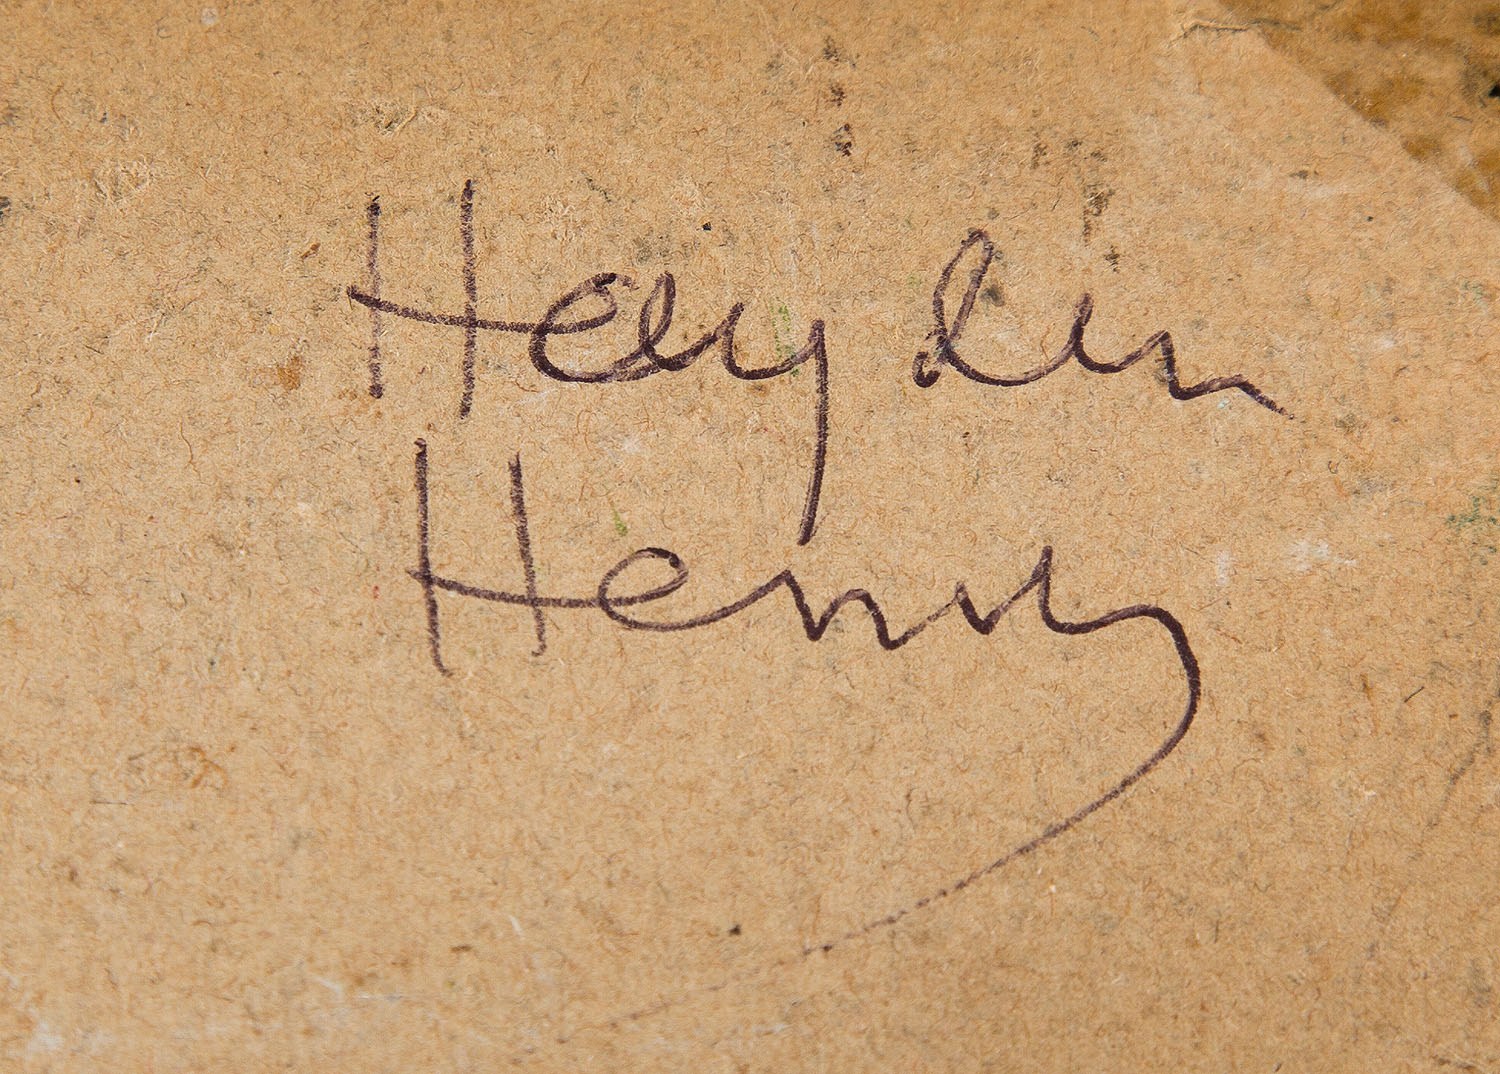 Hayden
Henry